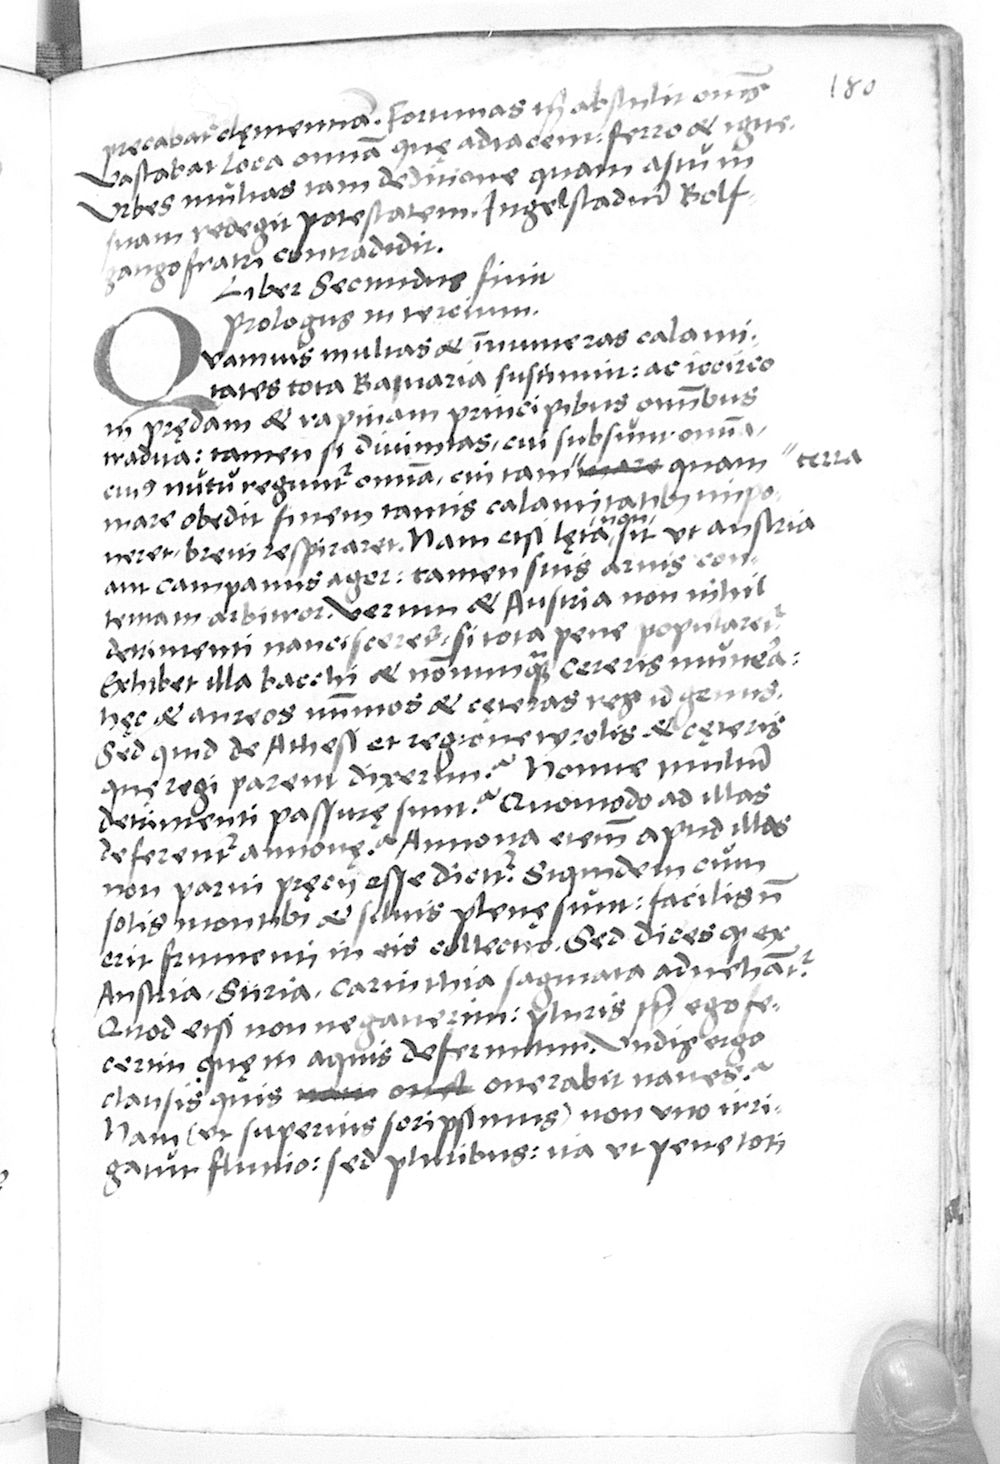 180
precabat᷑ clęmentiā. Fortunas tn̄ abstulit om̄s
Vastabat loca omniā quę adiacent: ferro & igne.
Vrbes multas tam deditione quam astu in
suam redegit potestatem. Ingelstadiū Rolf-
gango fratri contradidit.
Liber Secundus finit
Prologus in tercium.
Qvamuis multas & īnumeras calami-
tates tota Bauaria sustinuit: ac iccirco
in prędam & rapinam principibus omībus
tradita: tamen si diuinitas, cui subsunt omnia,
cuiꝰ nutu regunt᷑ omniā, cui tam " mare quam " terra
mare obedit finem tantis calamitatibꝫ impo-
neret, breui respiraret. Nam etsi lęta non sit vt austria
aut campanus ager: tamen suis aruis con-
tentam arbitror. Verum & Austria non nihil
detrimenti nancisceret᷑: si tota pene popularet᷑
Exhibet illa bacchi & nōnunqꝫ cereris munera:
hęc & aureos nūmos & cęteras res id genus.
Sed quid de Athesi et regione tyrolis & cęteris
quę regi parent dixerim? Nonne multū
detrimenti passurę sunt? Quomodo ad illas
deferent᷑ annonę? Annona eteni͂ apud illas
non parui pręcij esse dicit᷑. Siquidem cum
solis montibꝫ & siluis plenę sunt: facilis n̄
erit frumenti in eis collectio. Sed dices ꝙ ex
Austria, Stiria, carinthia sagmata aduehāt᷑?
Quod etsi non negauerim: pluris tn̄ ego fe-
cerim quę in aquis deferuntur. Vndis ergo
clausis quis onerabit naues?
Nam (vt superius scripsimus) non vno irri-
gatur fluuio: sed pluribus: ita vt pene toti